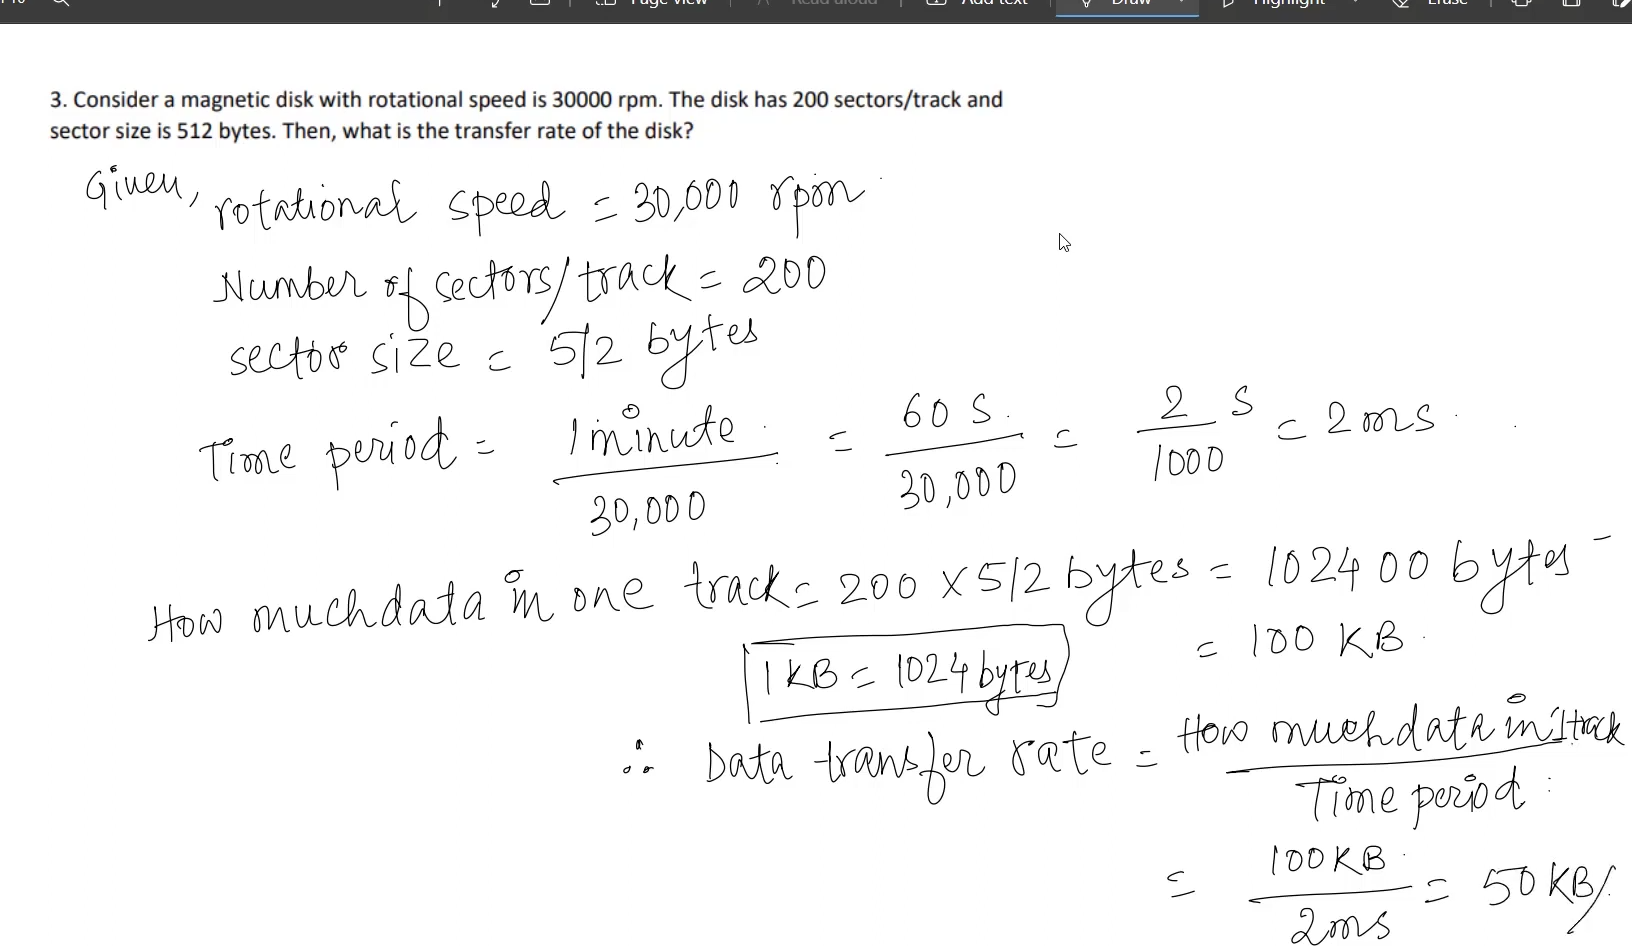 Page view
Read aloud
Add text
Draw
Highlight
Erase
3. Consider a magnetic disk with rotational speed is 30000 rpm. The disk has 200 sectors/track and
sector size is 512 bytes. Then, what is the transfer rate of the disk?
Given, rotational speed = 30,000 rpm
Number of sectors/track = 200
sector size = 512 bytes
Time period = 1 minute / 30,000 = 60 s / 30,000 = 2 / 1000 s = 2 ms
How much data in one track = 200 x 512 bytes = 102400 bytes
= 100 KB
1 KB = 1024 bytes
∴ Data transfer rate = How much data in 1 track / Time period
= 100 KB / 2ms = 50 KB/